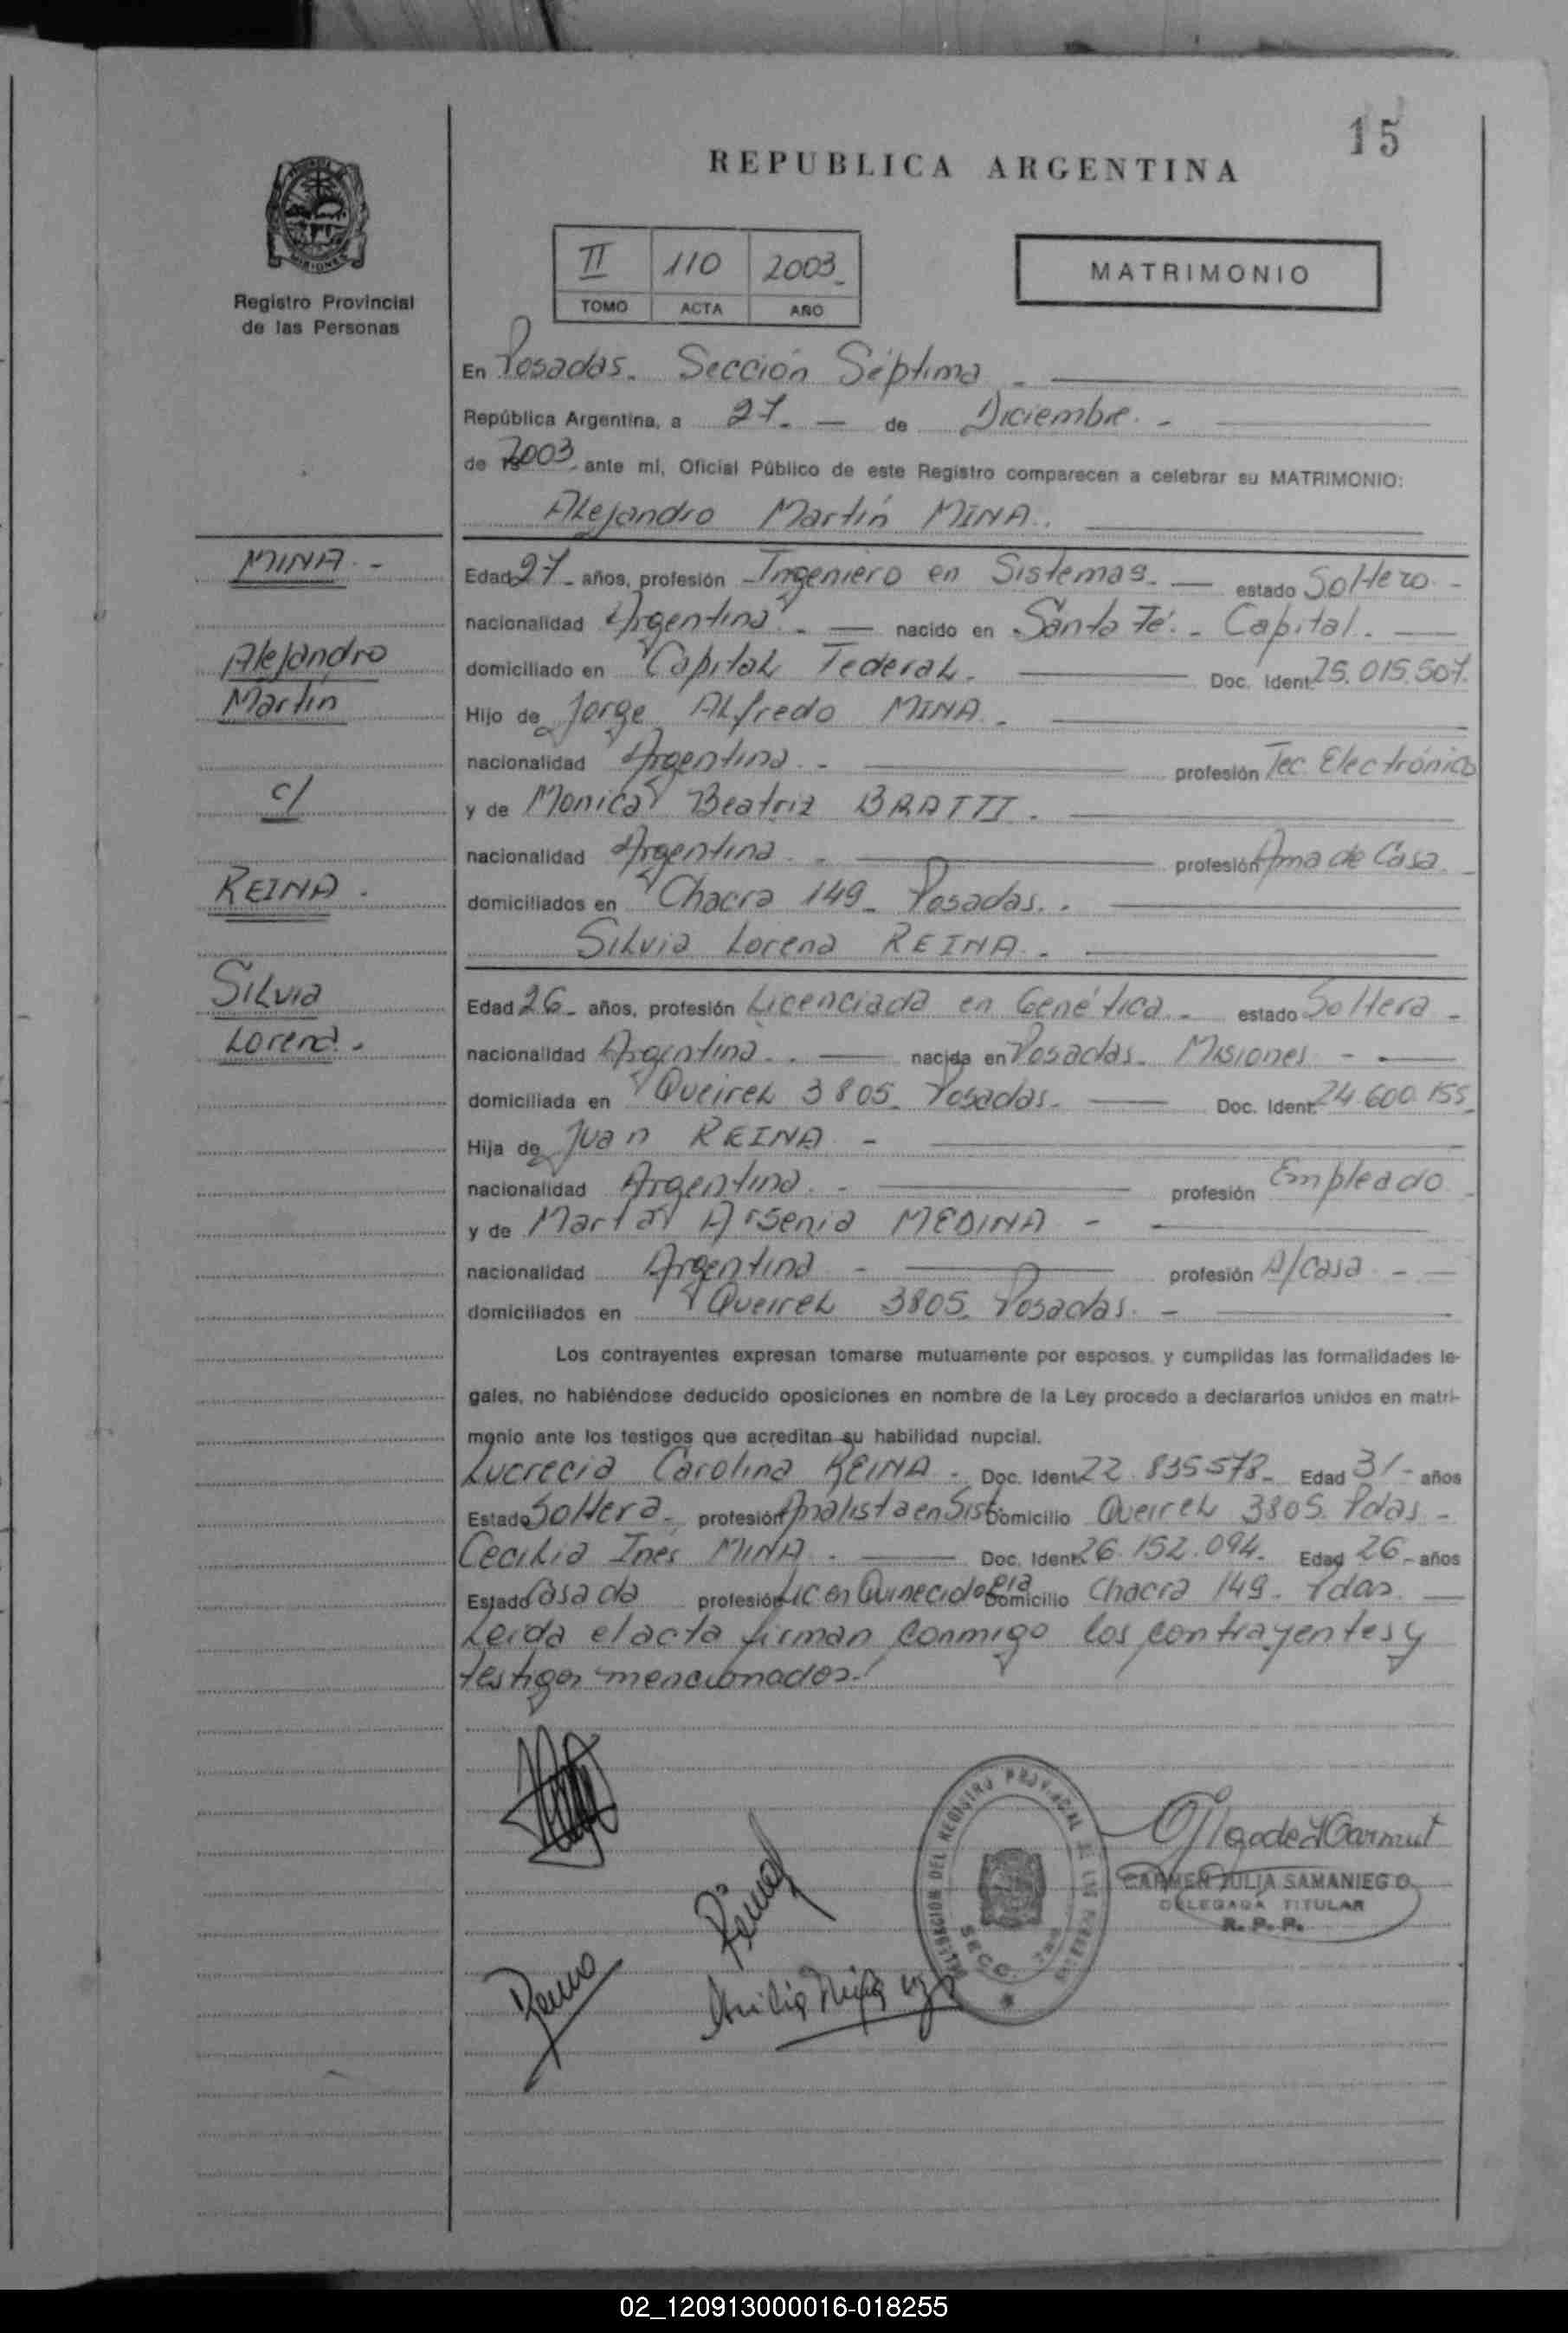 15
REPUBLICA ARGENTINA
MISIONES
Registro Provincial
de las Personas
II 110 2003
TOMO ACTA AÑO
MATRIMONIO
En Posadas. Sección Séptima
República Argentina, a 27 de Diciembre
de 2003 ante mí, Oficial Público de este Registro comparecen a celebrar su MATRIMONIO:
Alejandro Martín MINA
MINA
Alejandro
Martin
c/
REINA
Silvia
Lorena
Edad 27 años, profesión Ingeniero en Sistemas estado Soltero
nacionalidad Argentina nacido en Santa Fé. Capital
domiciliado en Capital Federal. Doc. Ident. 25.015.507
Hijo de Jorge Alfredo MINA
nacionalidad Argentina profesión Tec. Electrónico
y de Monica Beatriz BRATTI
nacionalidad Argentina profesión Ama de Casa
domiciliados en Chacra 149 Posadas
Silvia Lorena REINA
Edad 26 años, profesión Licenciada en Genética estado Soltera
nacionalidad Argentina nacida en Posadas. Misiones
domiciliada en Queirel 3805 Posadas Doc. Ident. 24.600.155
Hija de Juan REINA
nacionalidad Argentina profesión Empleado
y de Marta Arsenia MEDINA
nacionalidad Argentina profesión A/casa
domiciliados en Queirel 3805 Posadas
Los contrayentes expresan tomarse mutuamente por esposos, y cumplidas las formalidades le-
gales, no habiéndose deducido oposiciones en nombre de la Ley procedo a declararlos unidos en matri-
monio ante los testigos que acreditan su habilidad nupcial.
Lucrecia Carolina REINA Doc. Ident. 22.835.578 Edad 31 años
Estado Soltera profesión Analista en Sist Domicilio Queirel 3805 Pdas
Cecilia Ines MINA Doc. Ident. 26.152.094 Edad 26 años
Estado Casada profesión Lic en Domicilio Chacra 149 Pdas
Leida el acta firman conmigo los contrayentes y
testigos mencionados
REGISTRO PROVINCIAL DE LAS PERSONAS
SECC. 7ma
CARMEN JULIA SAMANIEGO
DELEGADA TITULAR
R. P. P.
02_120913000016-018255